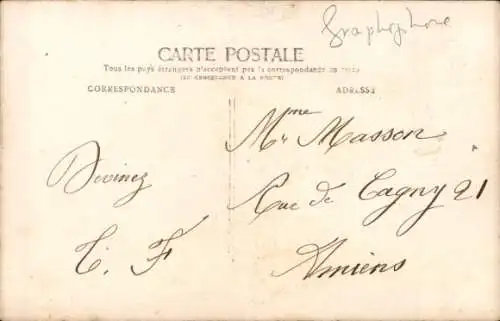 Graphophone
CARTE POSTALE
Tous les pays étrangers n'acceptent pas la correspondance au recto
(SE RENSEIGNER A LA POSTE)
CORRESPONDANCE
ADRESSE
Mme Masson
Devinez
Rue de Cagny 21
T. F
Amiens